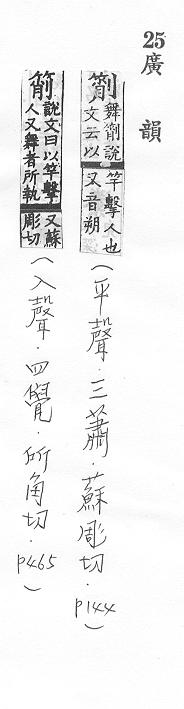 25 廣韻
箾 舞箾說文云以竿擊人也又音朔（平聲．三蕭．蘇彫切．P144）
箾 說文曰以竿擊人又舞者所執又蘇彫切（入聲．四覺．所角切．P465）